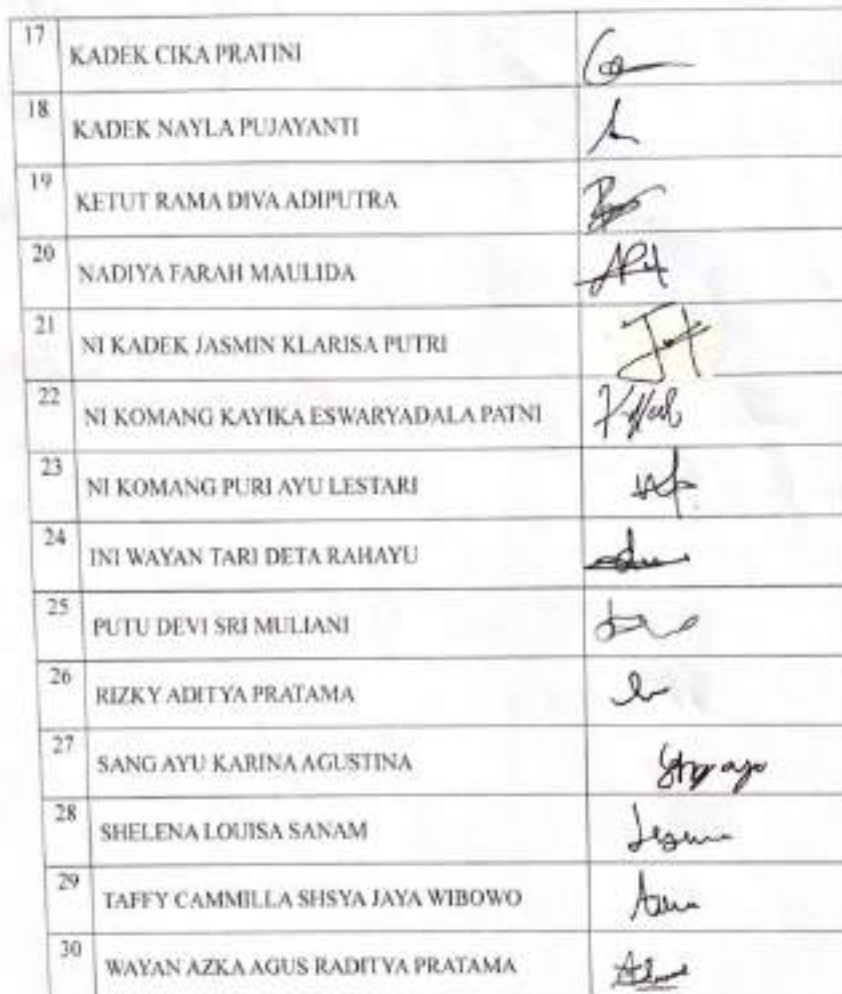 17 KADEK CIKA PRATINI
18 KADEK NAYLA PUJAYANTI
19 KETUT RAMA DIVA ADIPUTRA
20 NADIYA FARAH MAULIDA
21 NI KADEK JASMIN KLARISA PUTRI
22 NI KOMANG KAYIKA ESWARYADALA PATNI
23 NI KOMANG PURI AYU LESTARI
24 INI WAYAN TARI DETA RAHAYU
25 PUTU DEVI SRI MULIANI
26 RIZKY ADITYA PRATAMA
27 SANG AYU KARINA AGUSTINA
28 SHELENA LOUISA SANAM
29 TAFFY CAMMILLA SHSYA JAYA WIBOWO
30 WAYAN AZKA AGUS RADITYA PRATAMA